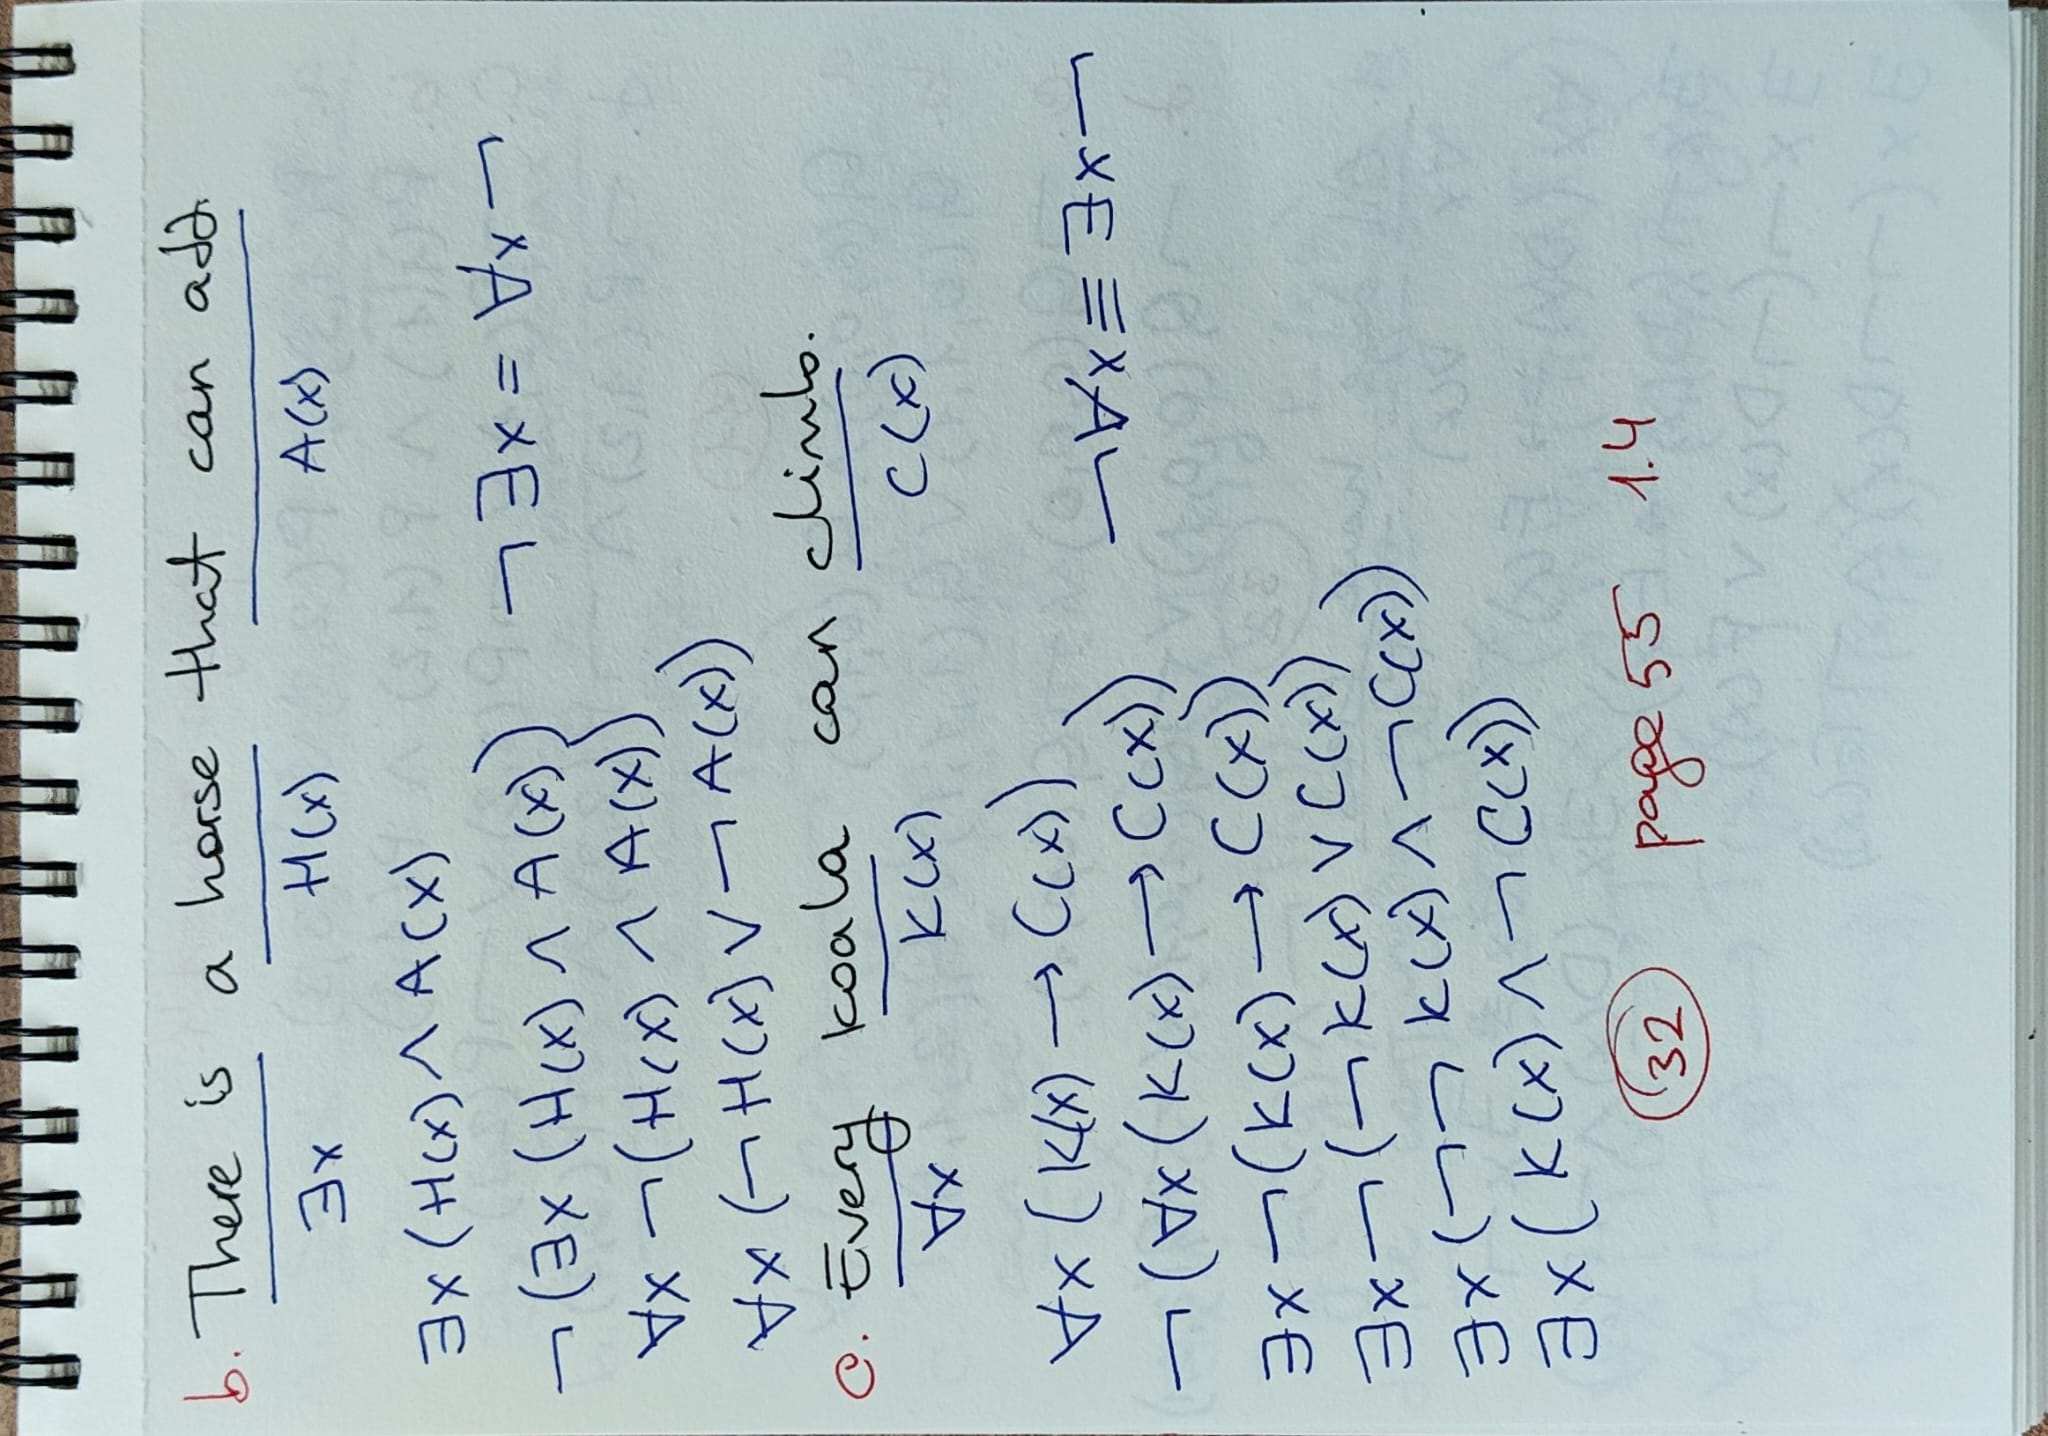 b. There is a horse that can add.
∃x H(x) A(x)
∃x (H(x) ∧ A(x)
¬(∃x (H(x) ∧ A(x)) ¬∃x = ∀x ¬
∀x ¬(H(x) ∧ A(x))
∀x (¬H(x) ∨ ¬A(x))
c. Every koala can climb.
∀x K(x) C(x)
∀x (K(x) → C(x))
¬(∀x (K(x) → C(x)) ¬∀x ≡ ∃x ¬
∃x ¬(K(x) → C(x))
∃x ¬(¬K(x) ∨ C(x))
∃x (¬¬K(x) ∧ ¬C(x))
∃x (K(x) ∧ ¬C(x))
32 page 55 1.4